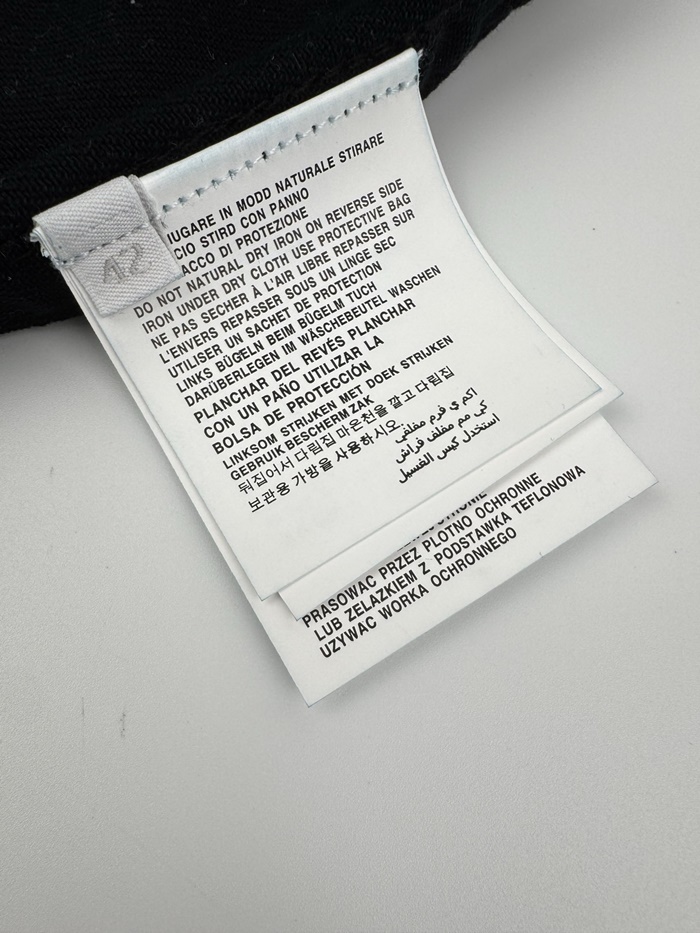 42
IUGARE IN MODD NATURALE STIRARE
CIO STIRD CON PANNO
ACCO DI PROTEZIONE
DO NOT NATURAL DRY IRON ON REVERSE SIDE
IRON UNDER DRY CLOTH USE PROTECTIVE BAG
NE PAS SECHER À L'AIR LIBRE REPASSER SUR
L'ENVERS REPASSER SOUS UN LINGE SEC
UTILISER UN SACHET DE PROTECTION
LINKS BÜGELN BEIM BÜGELM TUCH
DARÜBERLEGEN IM WÄSCHEBEUTEL WASCHEN
PLANCHAR DEL REVÉS PLANCHAR
CON UN PAÑO UTILIZAR LA
BOLSA DE PROTECCIÓN
LINKSOM STRIJKEN MET DOEK STRIJKEN
GEBRUIK BESCHERMZAK
뒤집어서 다림집 마온천을 깔고 다림집
보관용 가방을 사용하시오.
اكم ي فرم مقلني
كي مم مقلف فراش
استخدل كيس الغسيل
PRASOWAC PRZEZ PLOTNO OCHRONNE
LUB ZELAZKIEM Z PODSTAWKA TEFLONOWA
UZYWAC WORKA OCHRONNEGO